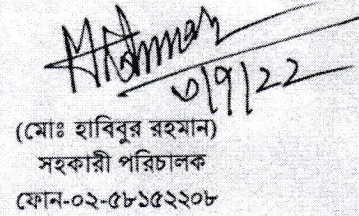 MRahman
৩/৭/২২
(মোঃ হাবিবুর রহমান)
সহকারী পরিচালক
ফোন-০২-৫৮১৫২২০৮